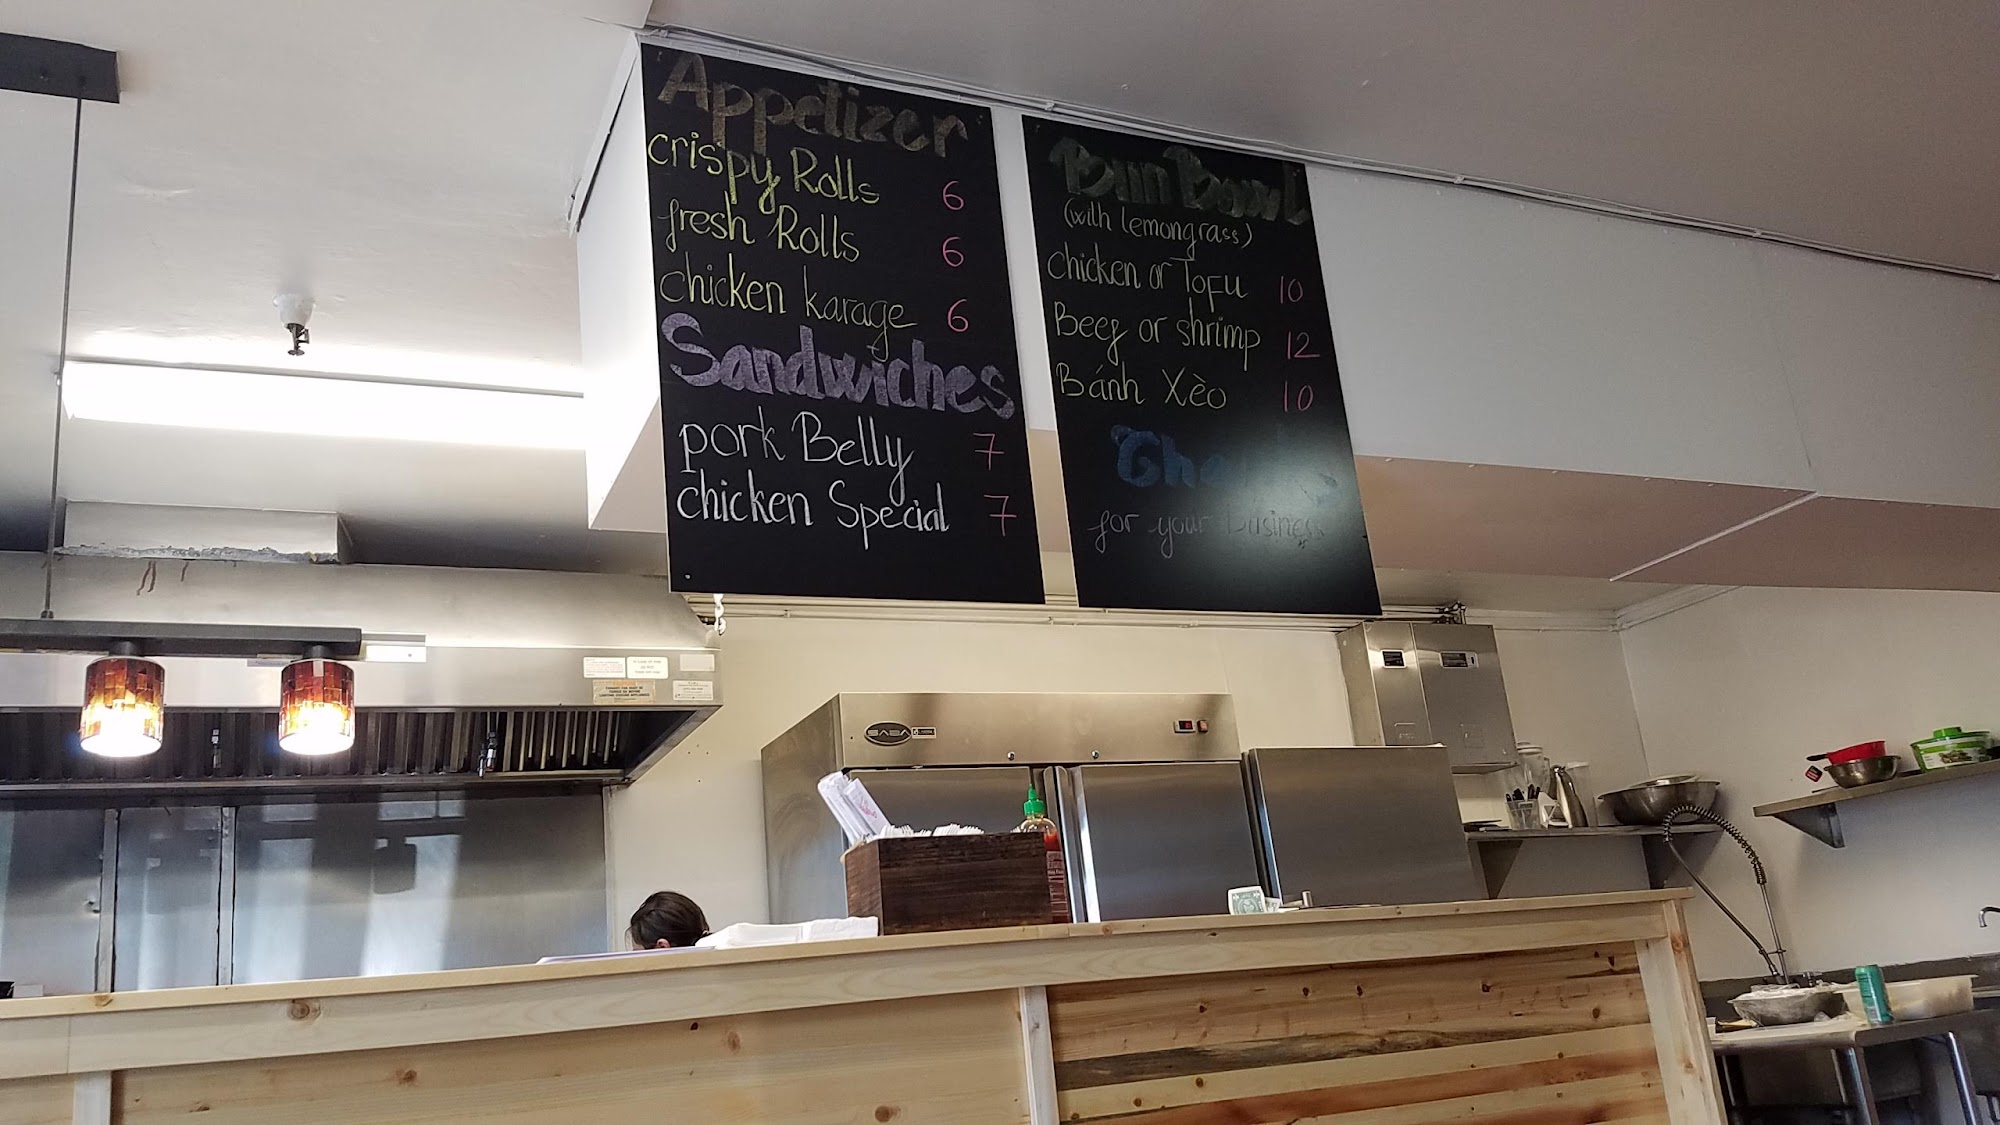 Appetizer
crispy Rolls 6
fresh Rolls 6
chicken karage 6
Sandwiches
pork Belly 7
chicken Special 7
Bun Bowl
(with lemongrass)
chicken or Tofu 10
Beef or shrimp 12
Bánh Xèo 10
Thanks
for your business
SABA